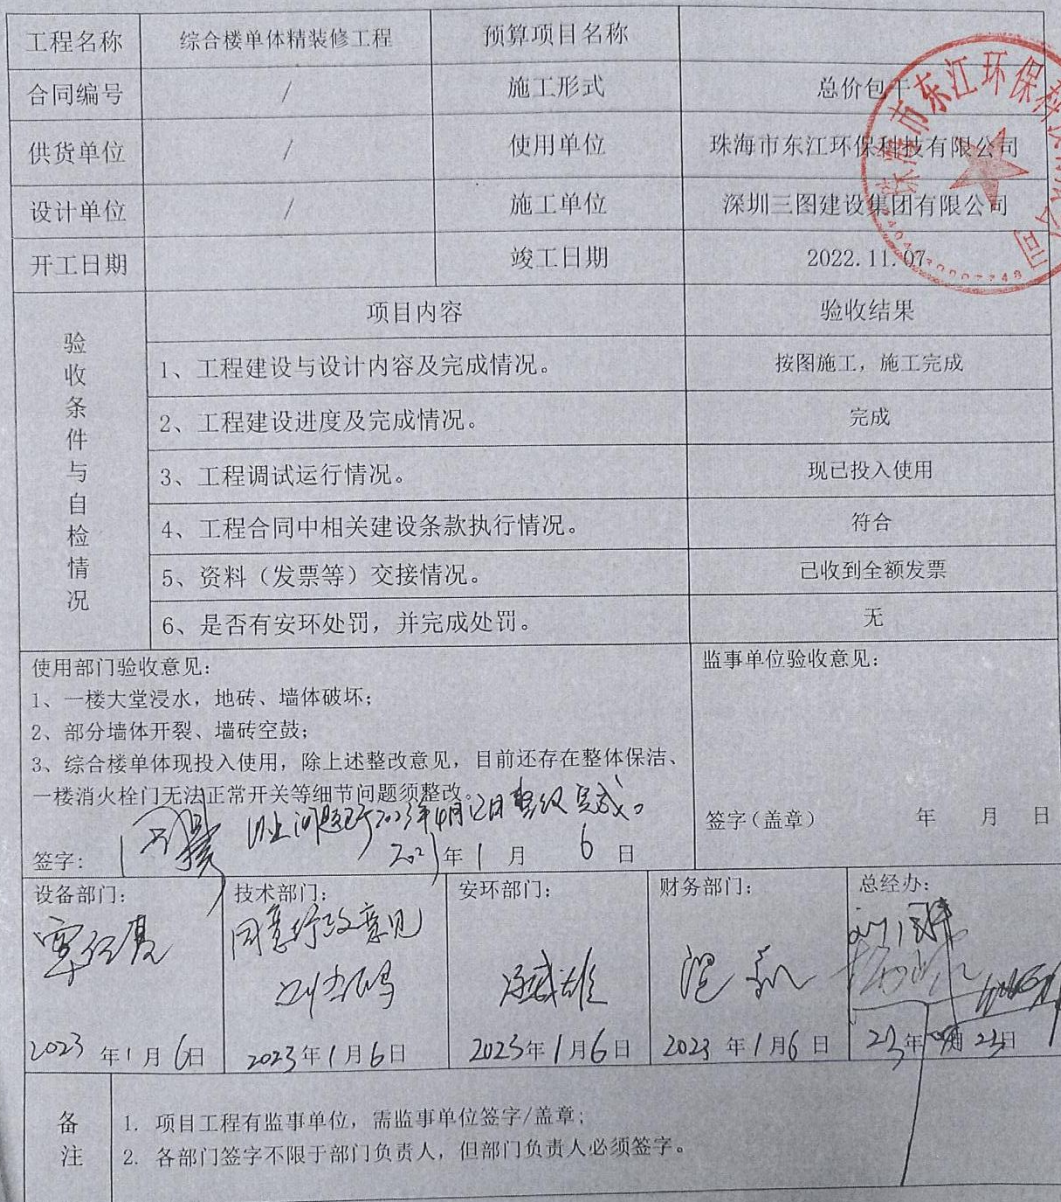 工程名称 综合楼单体精装修工程 预算项目名称
合同编号 / 施工形式 总价包干
供货单位 / 使用单位 珠海市东江环保科技有限公司
设计单位 / 施工单位 深圳三图建设集团有限公司
开工日期 竣工日期 2022.11.07
验收条件与自检情况
项目内容 验收结果
1、工程建设与设计内容及完成情况。 按图施工，施工完成
2、工程建设进度及完成情况。 完成
3、工程调试运行情况。 现已投入使用
4、工程合同中相关建设条款执行情况。 符合
5、资料（发票等）交接情况。 已收到全额发票
6、是否有安环处罚，并完成处罚。 无
使用部门验收意见：
1、一楼大堂浸水，地砖、墙体破坏；
2、部分墙体开裂、墙砖空鼓；
3、综合楼单体现投入使用，除上述整改意见，目前还存在整体保洁、
一楼消火栓门无法正常开关等细节问题须整改。
以上问题已于2023年4月12日整改完成。
签字： 2023年1月6日
监事单位验收意见：
签字（盖章） 年 月 日
设备部门：
2023年1月6日
技术部门：
同意行政意见
2023年1月6日
安环部门：
2023年1月6日
财务部门：
2023年1月6日
总经办：
23年 月23日
备注
1. 项目工程有监事单位，需监事单位签字/盖章；
2. 各部门签字不限于部门负责人，但部门负责人必须签字。
珠海市东江环保科技有限公司